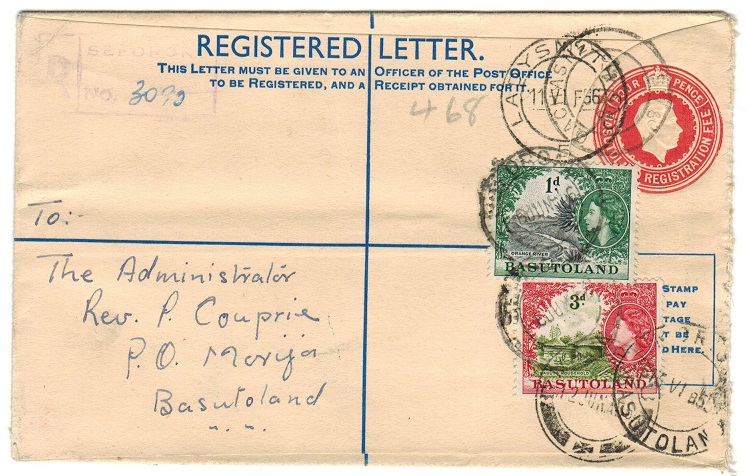 REGISTERED LETTER.
THIS LETTER MUST BE GIVEN TO AN OFFICER OF THE POST OFFICE
TO BE REGISTERED, AND A RECEIPT OBTAINED FOR IT.
No.
468
LADYSMITH
11 VI 56
FOUR PENCE
REGISTRATION FEE
1d
ORANGE RIVER
BASUTOLAND
3d
BASUTOLAND
STAMP
PAY
BE
HERE.
BASUTOLAN
To:-
The Administrator
Rev. P. Couprie
P.O. Morija
Basutoland